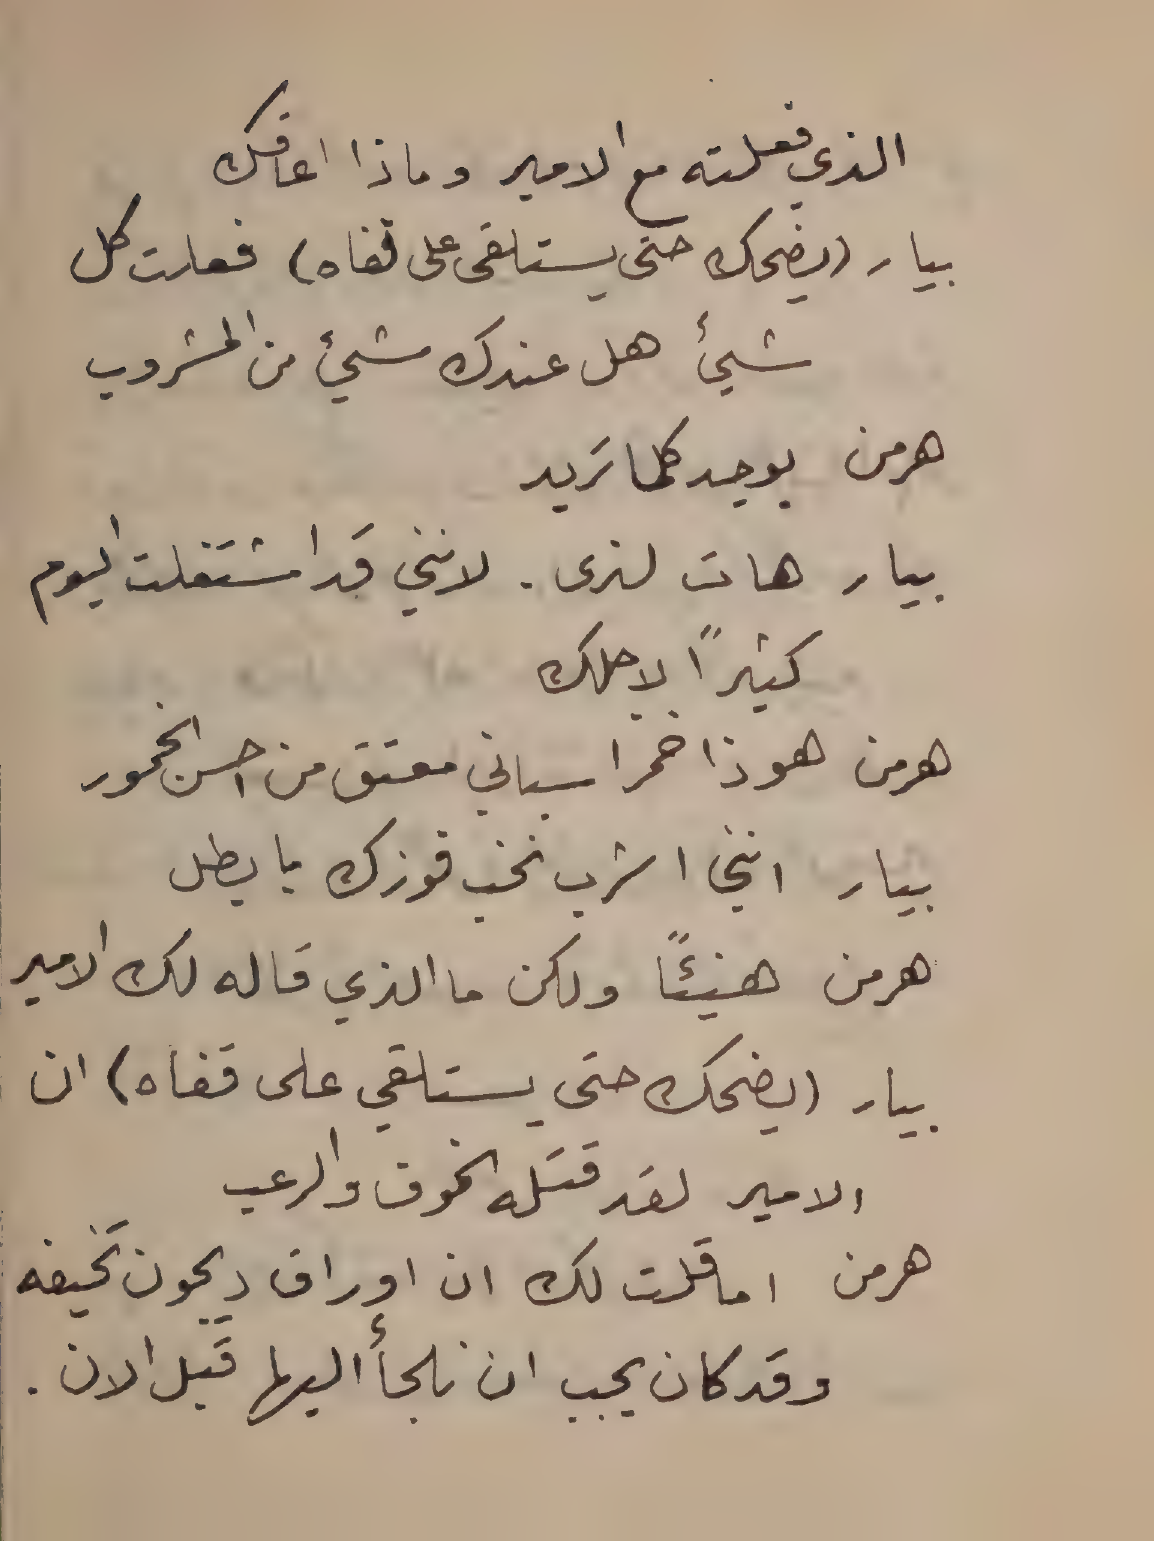 الذي فعلته مع الامير وماذا اعاقك
بيار (يضحك حتى يستلقي على قفاه) فعلت كل
شيئ هل عندك شيئ من المشروب
هرمن يوجد كلما تريد
بيار هات لنرى. لانني قد اشتغلت اليوم
كثيرًا لاجلك
هرمن هوذا خمر اسباني معتق من احسن الخمور
بيار انني اشرب نخب فوزك يا بطل
هرمن هنيئًا ولكن ما الذي قاله لك الامير
بيار (يضحك حتى يستلقي على قفاه) ان
الامير لقد قتله الخوف والرعب
هرمن اما قلت لك ان اوراق ديجون تخيفه
وقد كان يجب ان نلجأ اليها قبل الان.